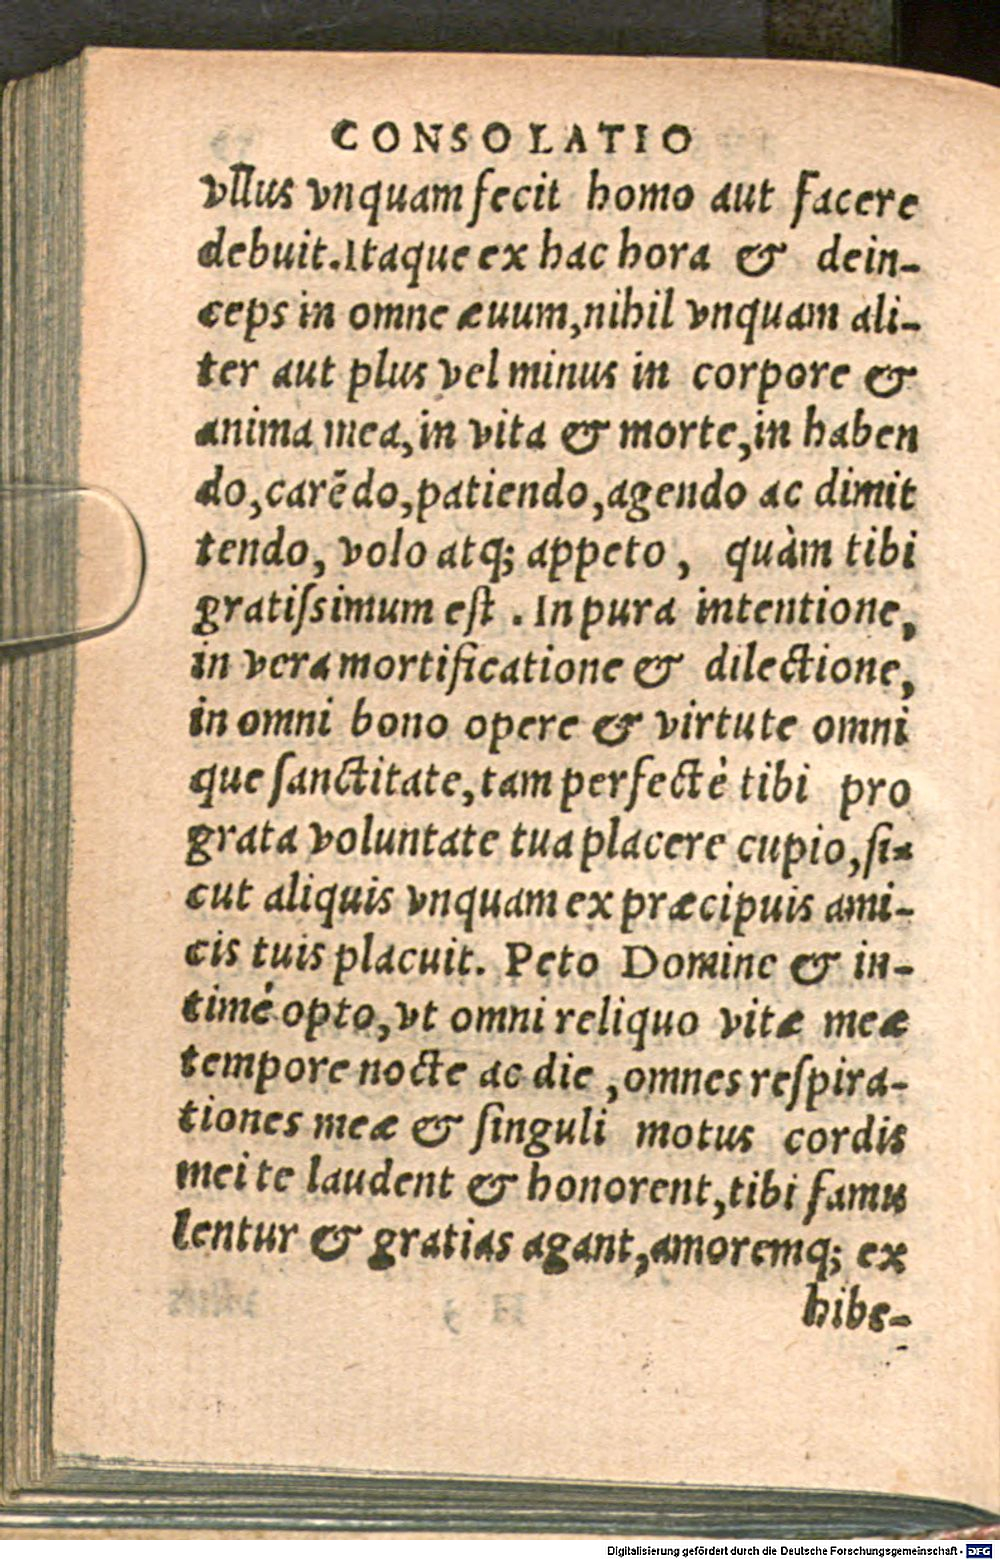 CONSOLATIO
vllus vnquam fecit homo aut facere
debuit. Itaque ex hac hora & dein-
ceps in omne æuum, nihil vnquam ali-
ter aut plus vel minus in corpore &
anima mea, in vita & morte, in haben
do, carēdo, patiendo, agendo ac dimit
tendo, volo atq; appeto, quàm tibi
gratiſsimum eſt. In pura intentione,
in vera mortificatione & dilectione,
in omni bono opere & virtute omni
que ſanctitate, tam perfectè tibi pro
grata voluntate tua placere cupio, ſi-
cut aliquis vnquam ex præcipuis ami-
cis tuis placuit. Peto Domine & in-
timè opto, vt omni reliquo vitæ meæ
tempore nocte ac die, omnes reſpira-
tiones meæ & ſinguli motus cordis
mei te laudent & honorent, tibi famu
lentur & gratias agant, amoremq; ex
hibe-
Digitalisierung gefördert durch die Deutsche Forschungsgemeinschaft - DFG